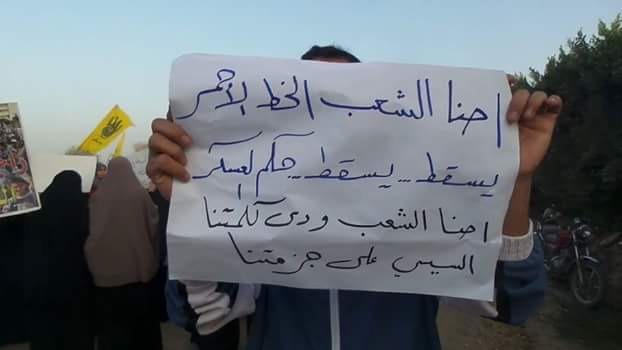 احنا الشعب الخط الاحمر
يسقط .. يسقط .. حكم العسكر
احنا الشعب ودى كلمتنا
السيسي على جزمتنا